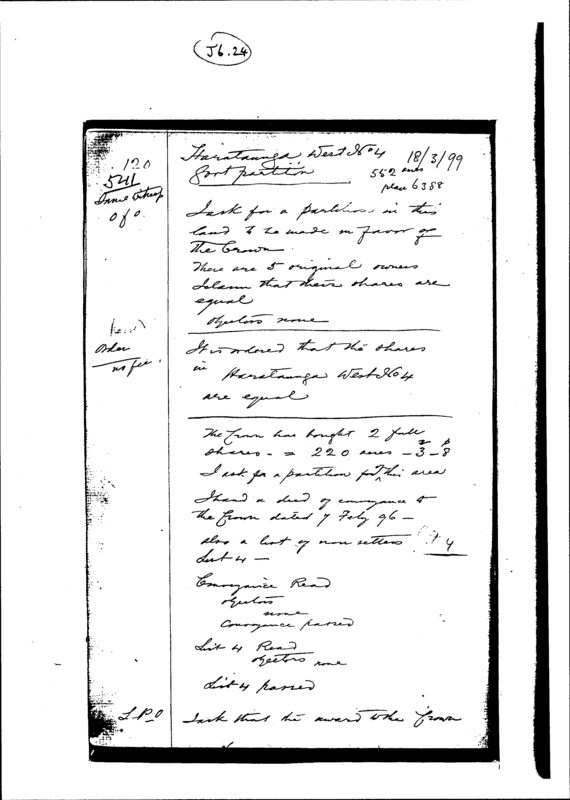 J6.24
Harataunga West No 4 18/3/99
Govt partition 552 acres
plan 6388
120
541
0 of 0
I ask for a partition in this
land to be made in favor of
the Crown.
There are 5 original owners
I claim that their shares are
equal
Objectors none
Order
no fee
It is ordered that the shares
in Harataunga West No 4
are equal
The Crown has bought 2 full
shares - = 220 acres - 3 - 8
I ask for a partition for this area
I hand a deed of conveyance to
the Crown dated 7 Feby 96 -
also a list of non sellers 4
List 4 -
Conveyance Read
objectors
none
Conveyance passed
List 4 Read
objectors none
List 4 passed
I ask that the award to the Crown